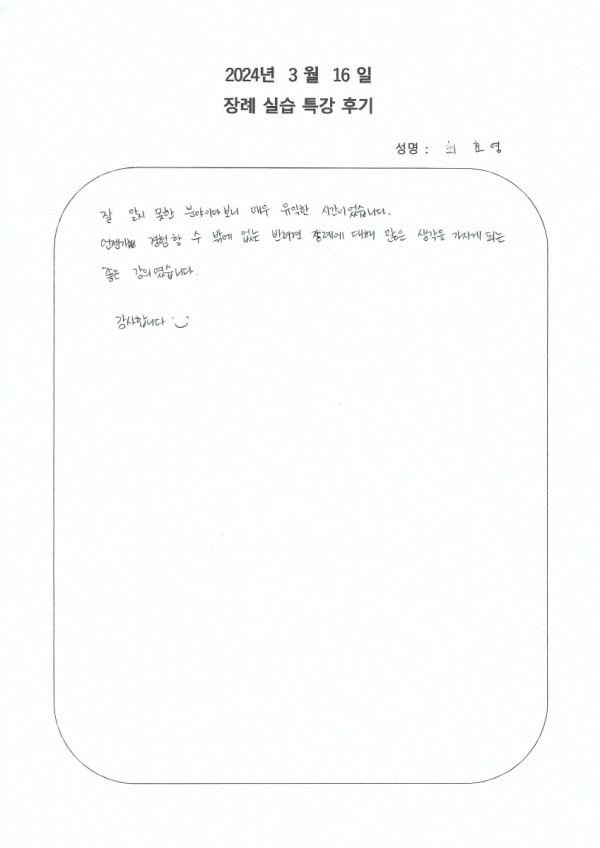 2024년 3 월 16 일
장례 실습 특강 후기
성명 : 최 효 영
잘 알지 못한 분야이다보니 매우 유익한 시간이었습니다.
언젠가는 경험할 수 밖에 없는 반려견 장례에 대해 많은 생각을 가지게 되는
좋은 강의였습니다.
감사합니다